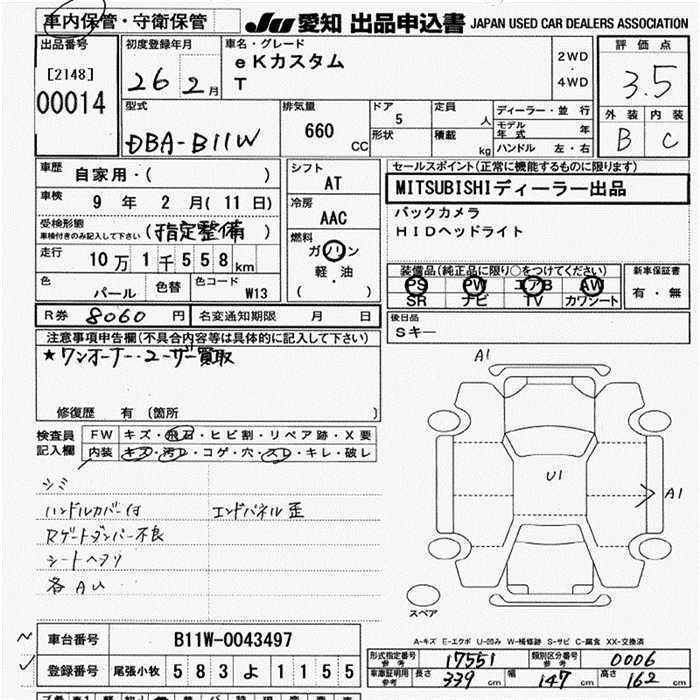 車内保管・守衛保管
JU 愛知 出品申込書 JAPAN USED CAR DEALERS ASSOCIATION
出品番号
[2148]
00014
初度登録年月
26 2月
車名・グレード
eKカスタム
T
2WD
・
4WD
評価点
3.5
外装 内装
B C
型式
DBA-B11W
排気量
660 CC
ドア
5
形状
定員
人
積載
kg
ディーラー・並行
モデル年式 年
ハンドル 左・右
車歴
自家用・( )
車検
9 年 2 月( 11 日)
受検形態
車検付きのみ記入して下さい (指定整備)
走行
10万1千558km
色
パール
色替
色コード
W13
シフト
AT
冷房
AAC
燃料
ガソリン
軽・油
( )
セールスポイント(正常に機能するものに限ります)
MITSUBISHIディーラー出品
バックカメラ
HIDヘッドライト
装備品(純正品に限り○をつけてください)
PS PW エアB AW
SR ナビ TV カワシート
新車保証書
有・無
R券 8060 円
名変通知期限 月 日
後日品
Sキー
注意事項申告欄(不具合内容等は具体的に記入して下さい)
★ワンオーナー・ユーザー買取
修復歴 有 〔箇所 〕
検査員
記入欄
FW キズ・飛石・ヒビ割・リペア跡・X要
内装 キズ・汚レ・コゲ・穴・スレ・キレ・破レ
シミ
ハンドルカバー付 エンドパネル歪
Rゲートダンパー不良
シートヘタリ
各AU
A1
U1
A1
スペア
A-キズ E-エクボ U-凹み W-補修跡 S-サビ C-腐食 XX-交換済
車台番号 B11W-0043497
登録番号 尾張小牧 583 よ 1155
形式指定番号
参考
17551
類別区分番号
参考
0006
車庫証明用
参考
長さ 339 cm 幅 147 cm 高さ 162 cm